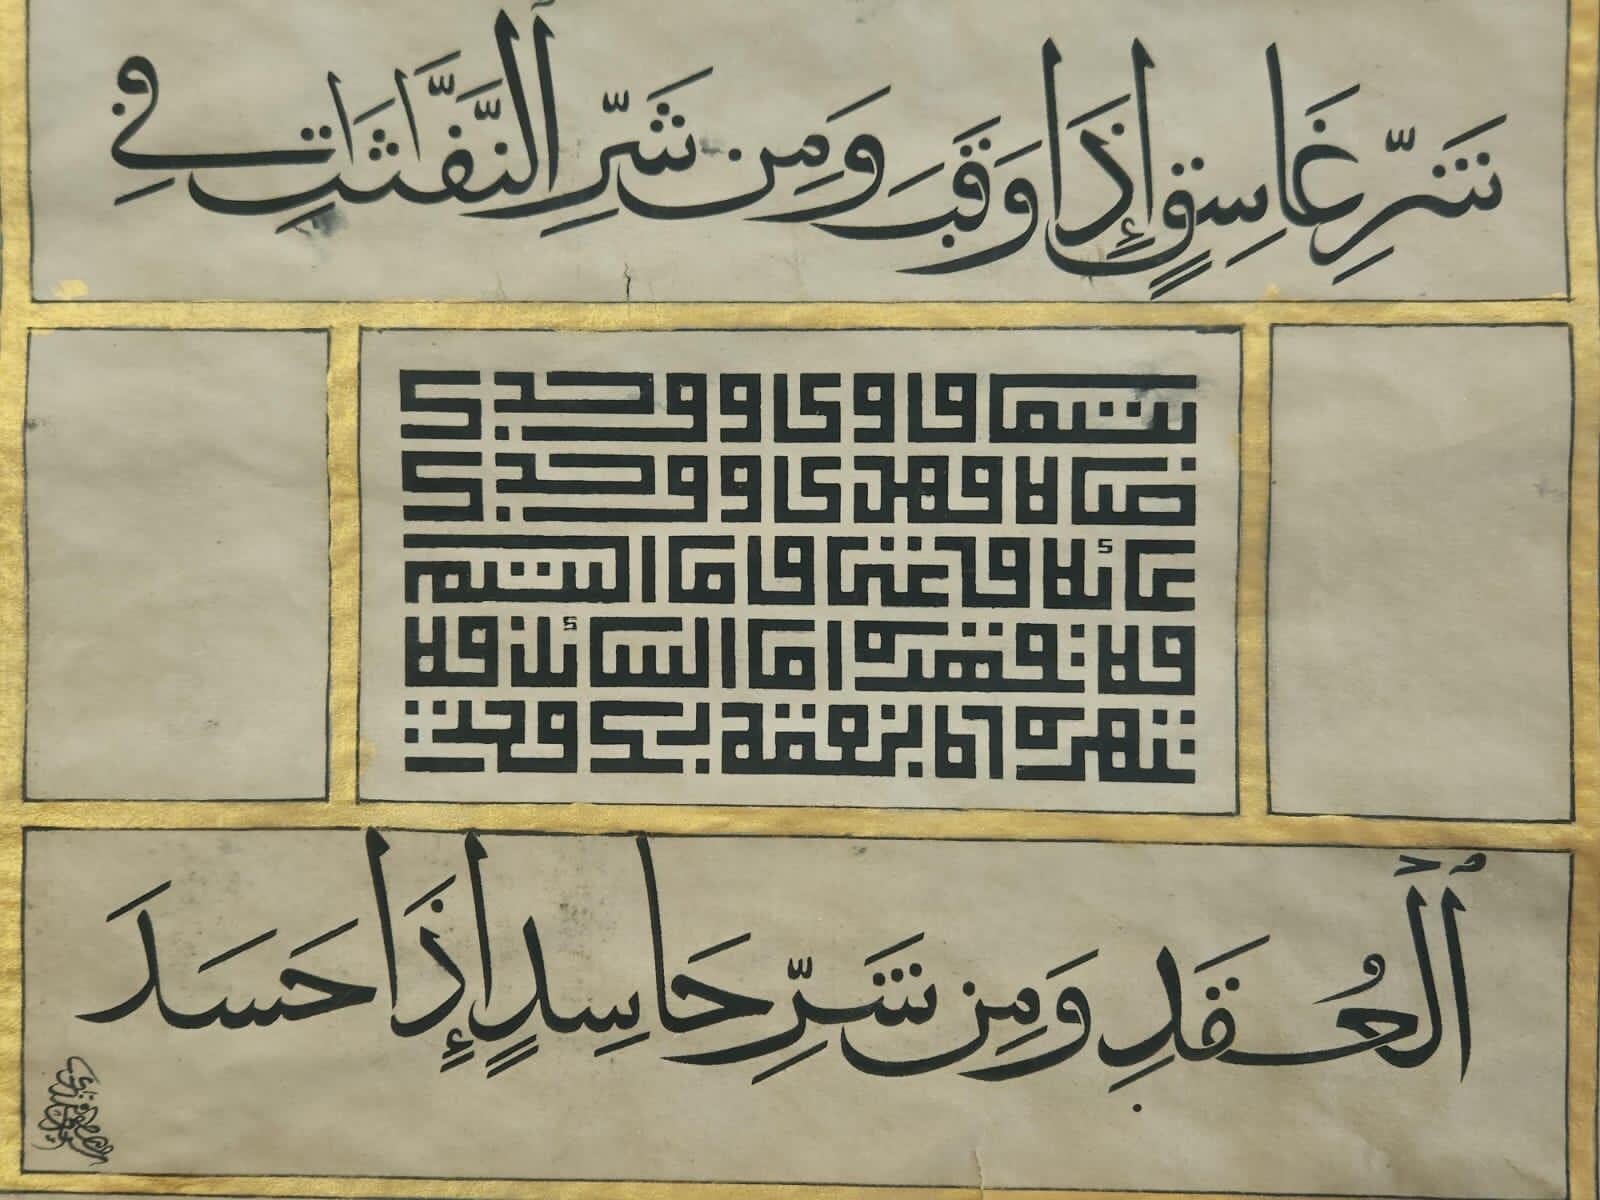 شَرِّ غَاسِقٍ إِذَا وَقَبَ وَمِن شَرِّ ٱلنَّفَّاثَاتِ فِي
يتيما فاوى ووجدك
ضالا فهدى ووجدك
عائلا فاغنى فاما اليتيم
فلا تقهر واما السائل فلا
تنهر واما بنعمة ربك فحدث
ٱلْعُقَدِ وَمِن شَرِّ حَاسِدٍ إِذَا حَسَدَ